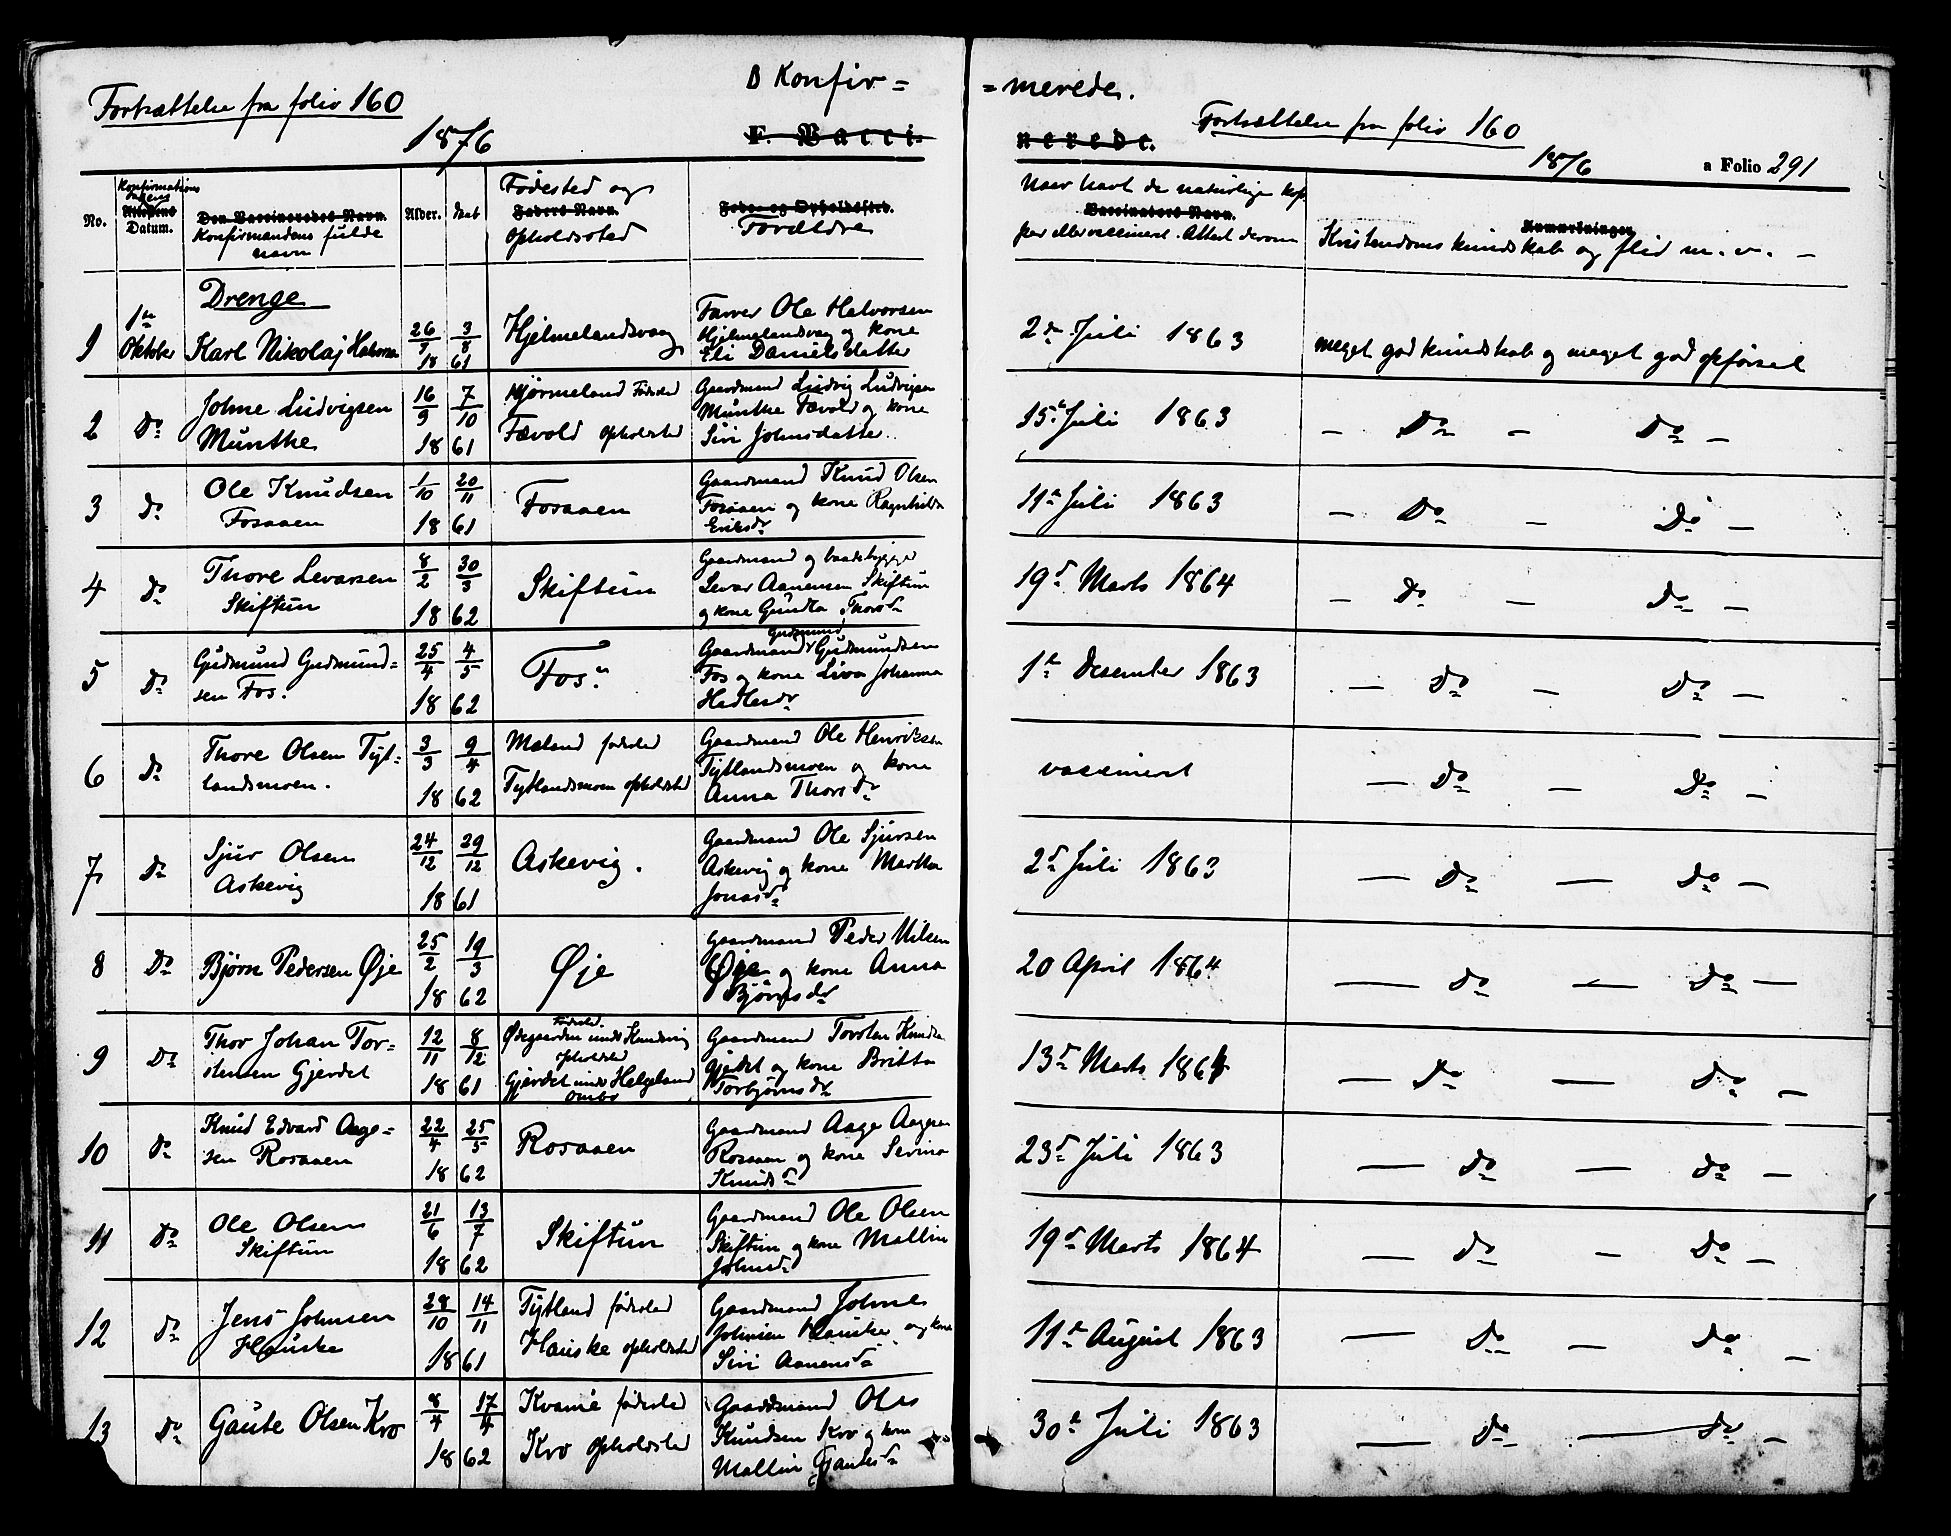 D Konfir =
= merede.
Fortsættelse fra folio 160
1876
F. Vacci-
nerede.
Fortsættelse fra folio 160
1876
a Folio 291
No.
Konfirmations
Datum.
Den Vaccineredes Navn.
Konfirmandens fulde
navn
Alder.
Daab
Fødested og
Faders Navn.
Opholdssted
Føde- og Opholdssted.
Forældre
Naar havt de naturlige kop
Vaccinators Navn.
per eller vaccineret. Attest derom
Anmærkninger
Kristendoms kundskab og flid m. v. -
Drenge
1 1te Oktober Karl Nikolaj Halvorsen
26/7 3/8
18 61
Hjelmelandsvaag
Farver Ole Halvorsen
Hjelmelandsvaag og kone
Eli Danielsdatter
2den Juli 1863
meget god kundskab og meget god opførsel
2 Do Johne Ludvigsen
Munthe
16/9 7/10
18 61
Hjørmeland Fødested
Fævold opholdsted
Gaardmand Ludvig Ludvigsen
Munthe Fævold og kone
Siri Johnsdatter.
15de Juli 1863
- Do - Do -
3 Do Ole Knudsen
Fosaaen
1/10 20/11
18 61
Fosaaen
Gaardmand Knud Olsen
Fosaaen og kone Ragnhilda
Eriksdr
11te Juli 1863
- Do - Do -
4 Do Thore Levarsen
Skiftun
8/2 30/3
18 62
Skiftun
Gaardmand og baadebygger
Levar Aanensen Skiftun
og kone Gunda Thorsd
19de Marts 1864
- Do - Do -
5 Do Gudmund Gudmund=
sen Fos.
25/4 4/5
18 62
Fos.
Gudmund
Gaardmand Gudmundsen
Fos og kone Liva Johanna
Hedlesdr
1te Desember 1863
- Do - Do -
6 Do Thore Olsen Tyt=
landsmoen.
3/3 9/4
18 62
Mæland fødested
Tytlandsmoen opholdsted
Gaardmand Ole Henriksen
Tytlandsmoen og kone
Anna Thorsdr
vaccineret
- Do - Do -
7 Do Sjur Olsen
Askevig
24/12 29/12
18 61
Askevig.
Gaardmand Ole Sjursen
Askevig og kone Martha
Jonasd
2den Juli 1863
- Do - Do -
8 Do Bjørn Pedersen Øje
25/2 19/3
18 62
Øje
Gaardmand Peder Nilsen
Øje og kone Anna
Bjørnsdr
20 April 1864
- Do - Do -
9 Do Thor Johan Tor=
stensen Gjerdet
12/11 8/12
18 61
Fødested
Ødegaarden under Hundsvig
opholdsted
Gjerdet under Helgeland
Ombo
Gaardmand Torsten Knudsen
Gjerdet og kone Britta
Torbjørnsdr
13de Marts 1864
- Do - Do -
10 Do Knud Edvard Aage=
sen Rosaaen
22/4 25/5
18 62
Rosaaen
Gaardmand Aage Aagesen
Rosaaen og kone Serina
Knudsd
23de Juli 1863
- Do - Do -
11 Do Ole Olsen
Skiftun
21/6 13/7
18 62
Skiftun
Gaardmand Ole Olsen
Skiftun og kone Mallin
Johnsd
19de Marts 1864
- Do - Do -
12 Do Jens Johnsen
Hauske
28/10 14/11
18 61
Tytland fødested
Hauske opholdsted
Gaardmand Johne
Johnsen Hauske og kone
Siri Aanensd
11te August 1863
- Do - Do -
13 Do Gaute Olsen Kro
8/4 17/4
18 62
Kvame fødested
Kro opholdsted
Gaardmand Ole
Knudsen Kro og kone
Mallin Gautesd
30te Juli 1863
- Do - Do -